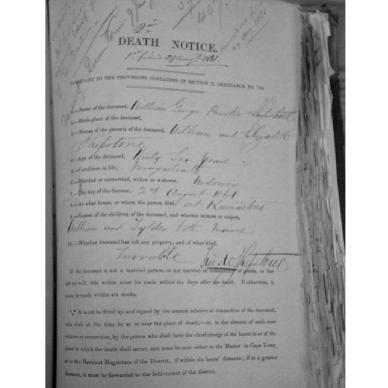 DEATH NOTICE,
PURSUANT TO THE PROVISIONS CONTAINED IN SECTION I, ORDINANCE NO. 104.
1.—Name of the deceased, William George Shepstone
2.—Birth-place of the deceased,
3.—Names of the parents of the deceased, William and Elizabeth
Shepstone
4.—Age of the deceased, Thirty Six Years
5.—Condition in life, Magistrate
6.—Married or unmarried, widow or widower, Widower
7.—The day of the decease, 2nd August 1861
8.—At what house, or where the person died, at Kamastone
9.—Names of the children of the deceased, and whether minors or majors,
William and both minors
10.—Whether deceased has left any property, and of what kind,
Moveable
If the deceased is not a married person, or not married in community of goods, or has
left no will, this notice must be made within six days after the death. If otherwise, it
must be made within six weeks.
It must be filled up and signed by the nearest relative or connection of the deceased,
who shall at the time be at or near the place of death,—or, in the absence of such near
relative or connection, by the person who shall have the chief charge of the house in or of the
place in which the death shall occur, and must be sent either to the Master in Cape Town,
or to the Resident Magistrate of the District, if within six hours' distance; if at a greater
distance, it must be forwarded to the field-cornet of the district.